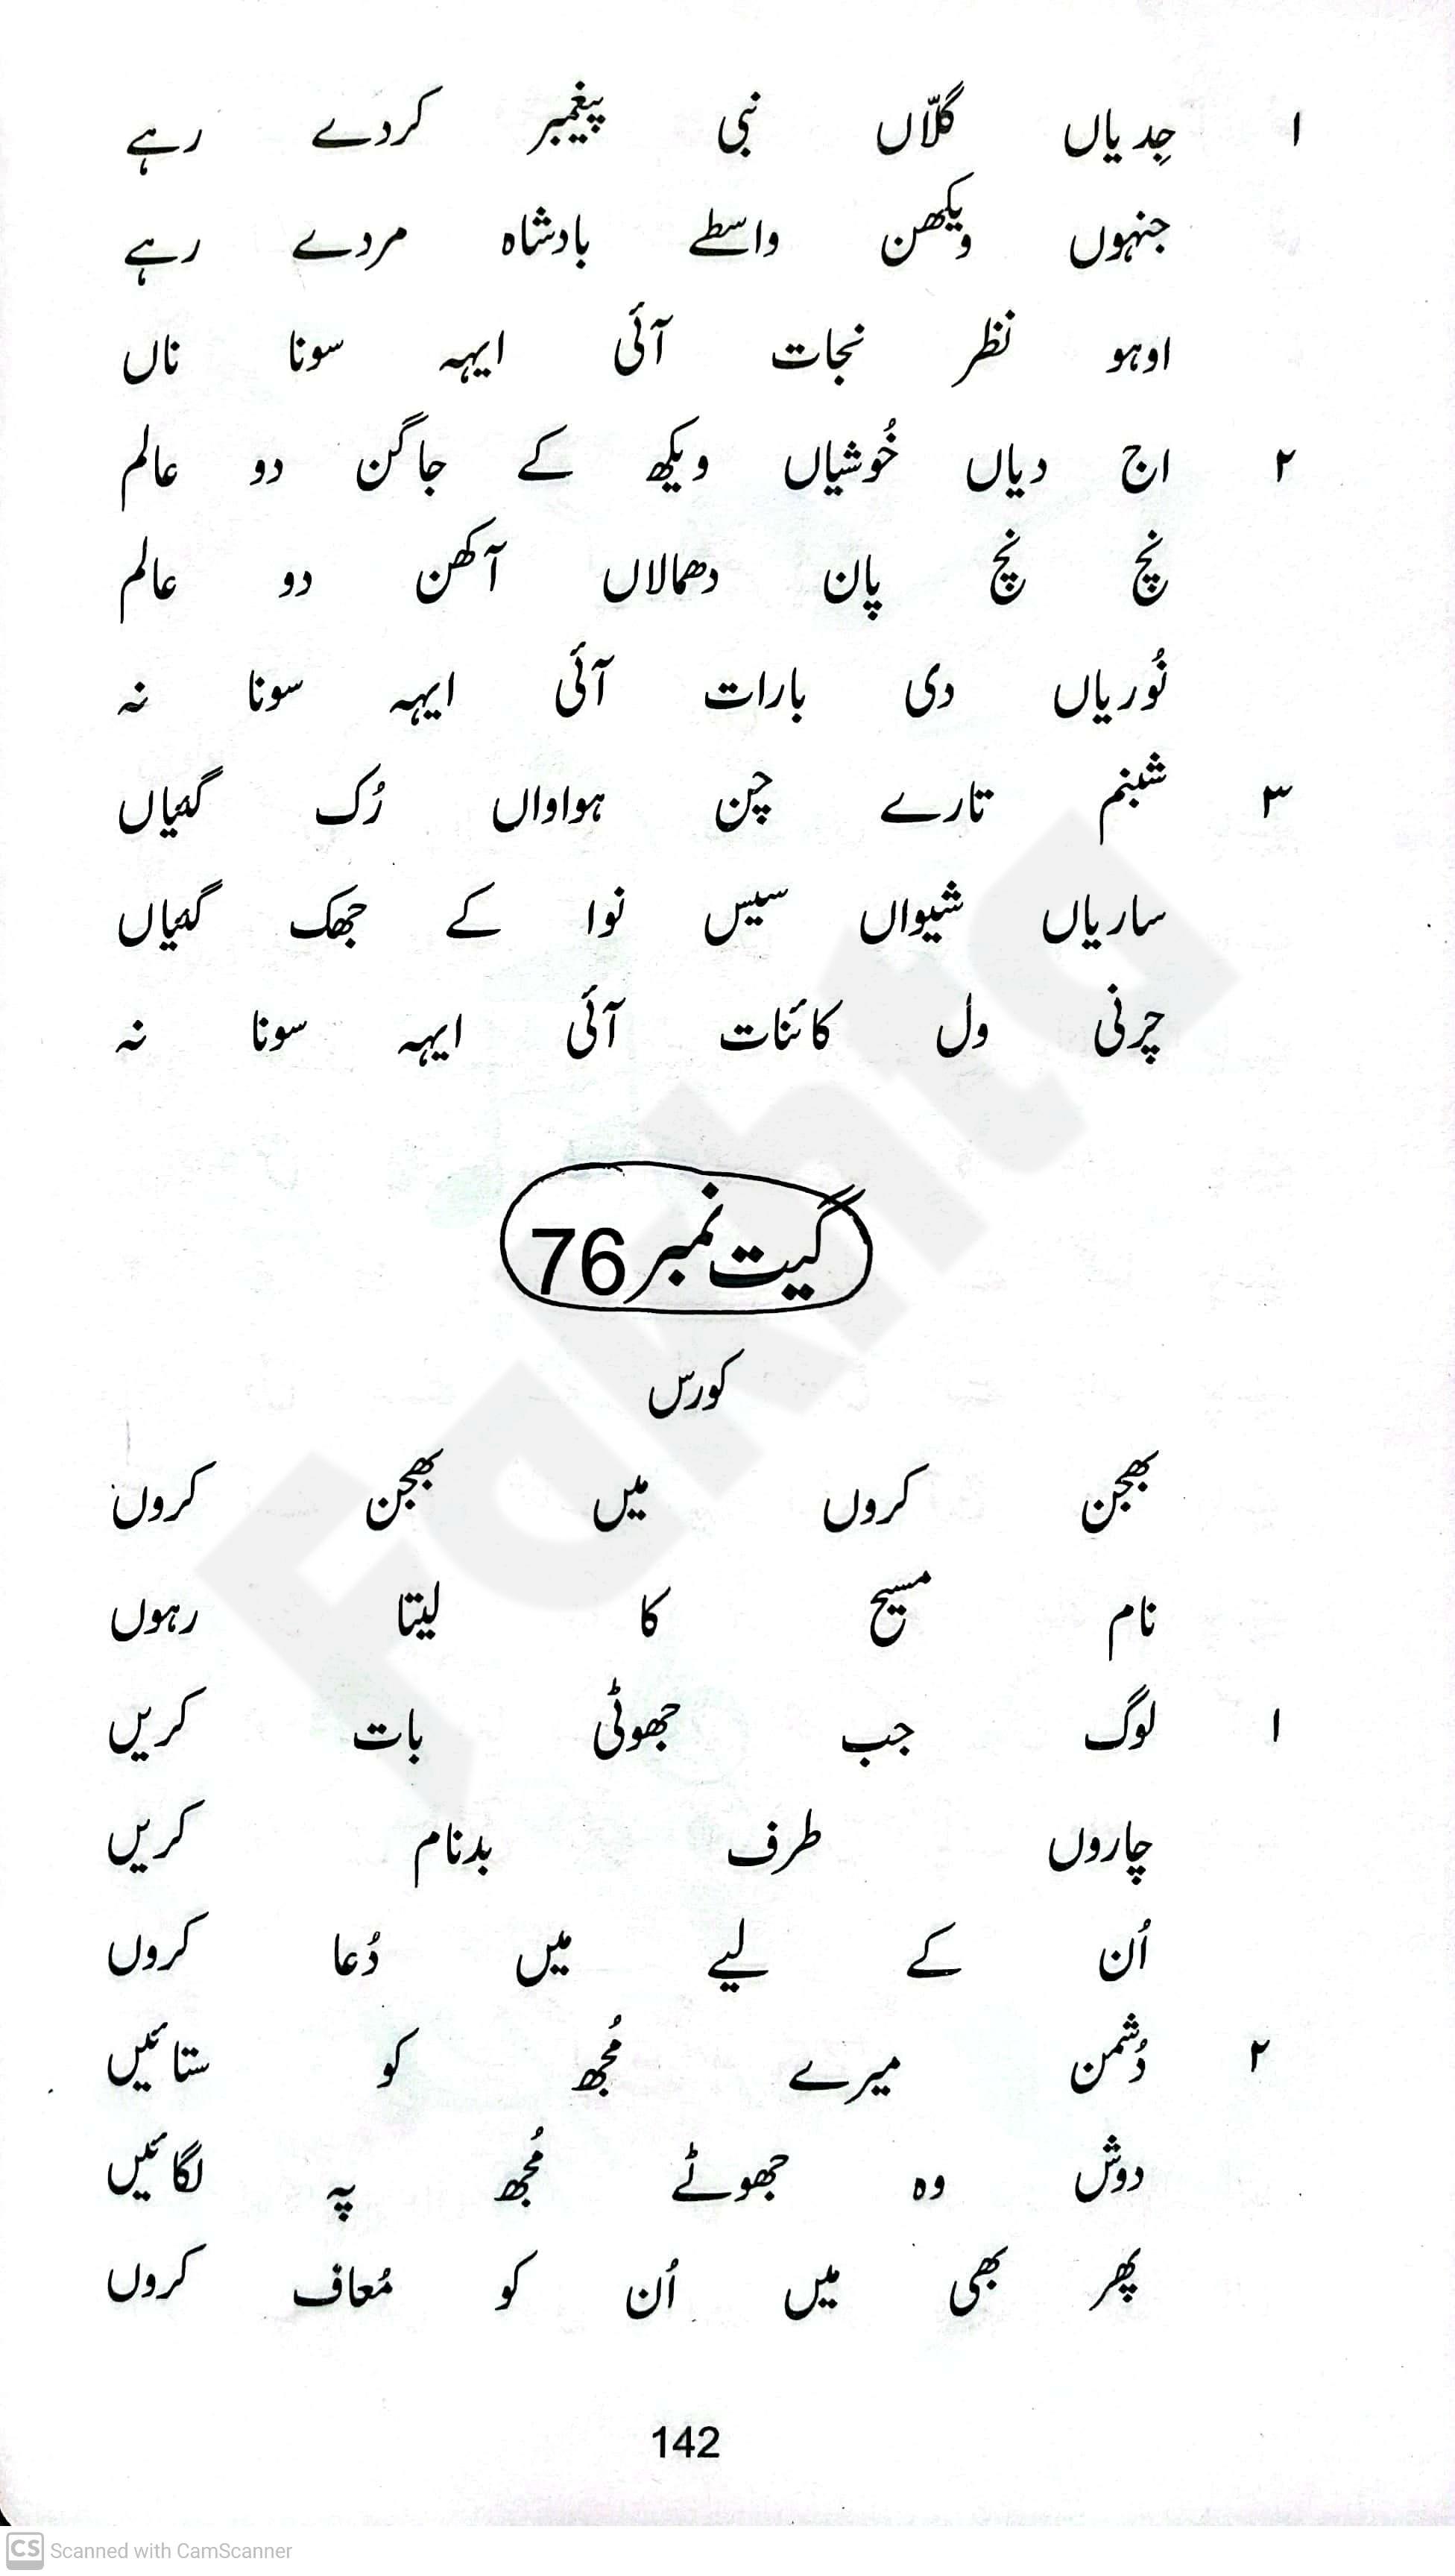 ۱ جِدیاں گلّاں نبی پیغمبر کردے رہے
جنہوں ویکھن واسطے بادشاہ مردے رہے
اوہو نظر نجات آئی ایہہ سونا ناں
۲ اج دیاں خُوشیاں ویکھ کے جاگن دو عالم
نچ نچ پان دھمالاں آکھن دو عالم
نُوریاں دی بارات آئی ایہہ سونا نہ
۳ شبنم تارے چن ہواواں رُک گئیاں
ساریاں شیواں سیس نوا کے جھک گئیاں
چرنی ول کائنات آئی ایہہ سونا نہ
گیت نمبر 76
کورس
بھجن کروں میں بھجن کروں
نام مسیح کا لیتا رہوں
۱ لوگ جب جھوٹی بات کریں
چاروں طرف بدنام کریں
اُن کے لیے میں دُعا کروں
۲ دُشمن میرے مُجھ کو ستائیں
دوش وہ جھوٹے مُجھ پہ لگائیں
پھر بھی میں اُن کو مُعاف کروں
142
Fakhta
CS Scanned with CamScanner